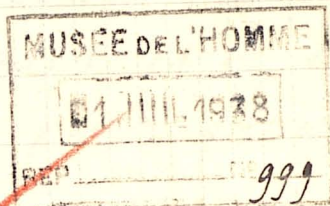 MUSÉE DE L'HOMME
1 JUIL. 1938
REP. 999